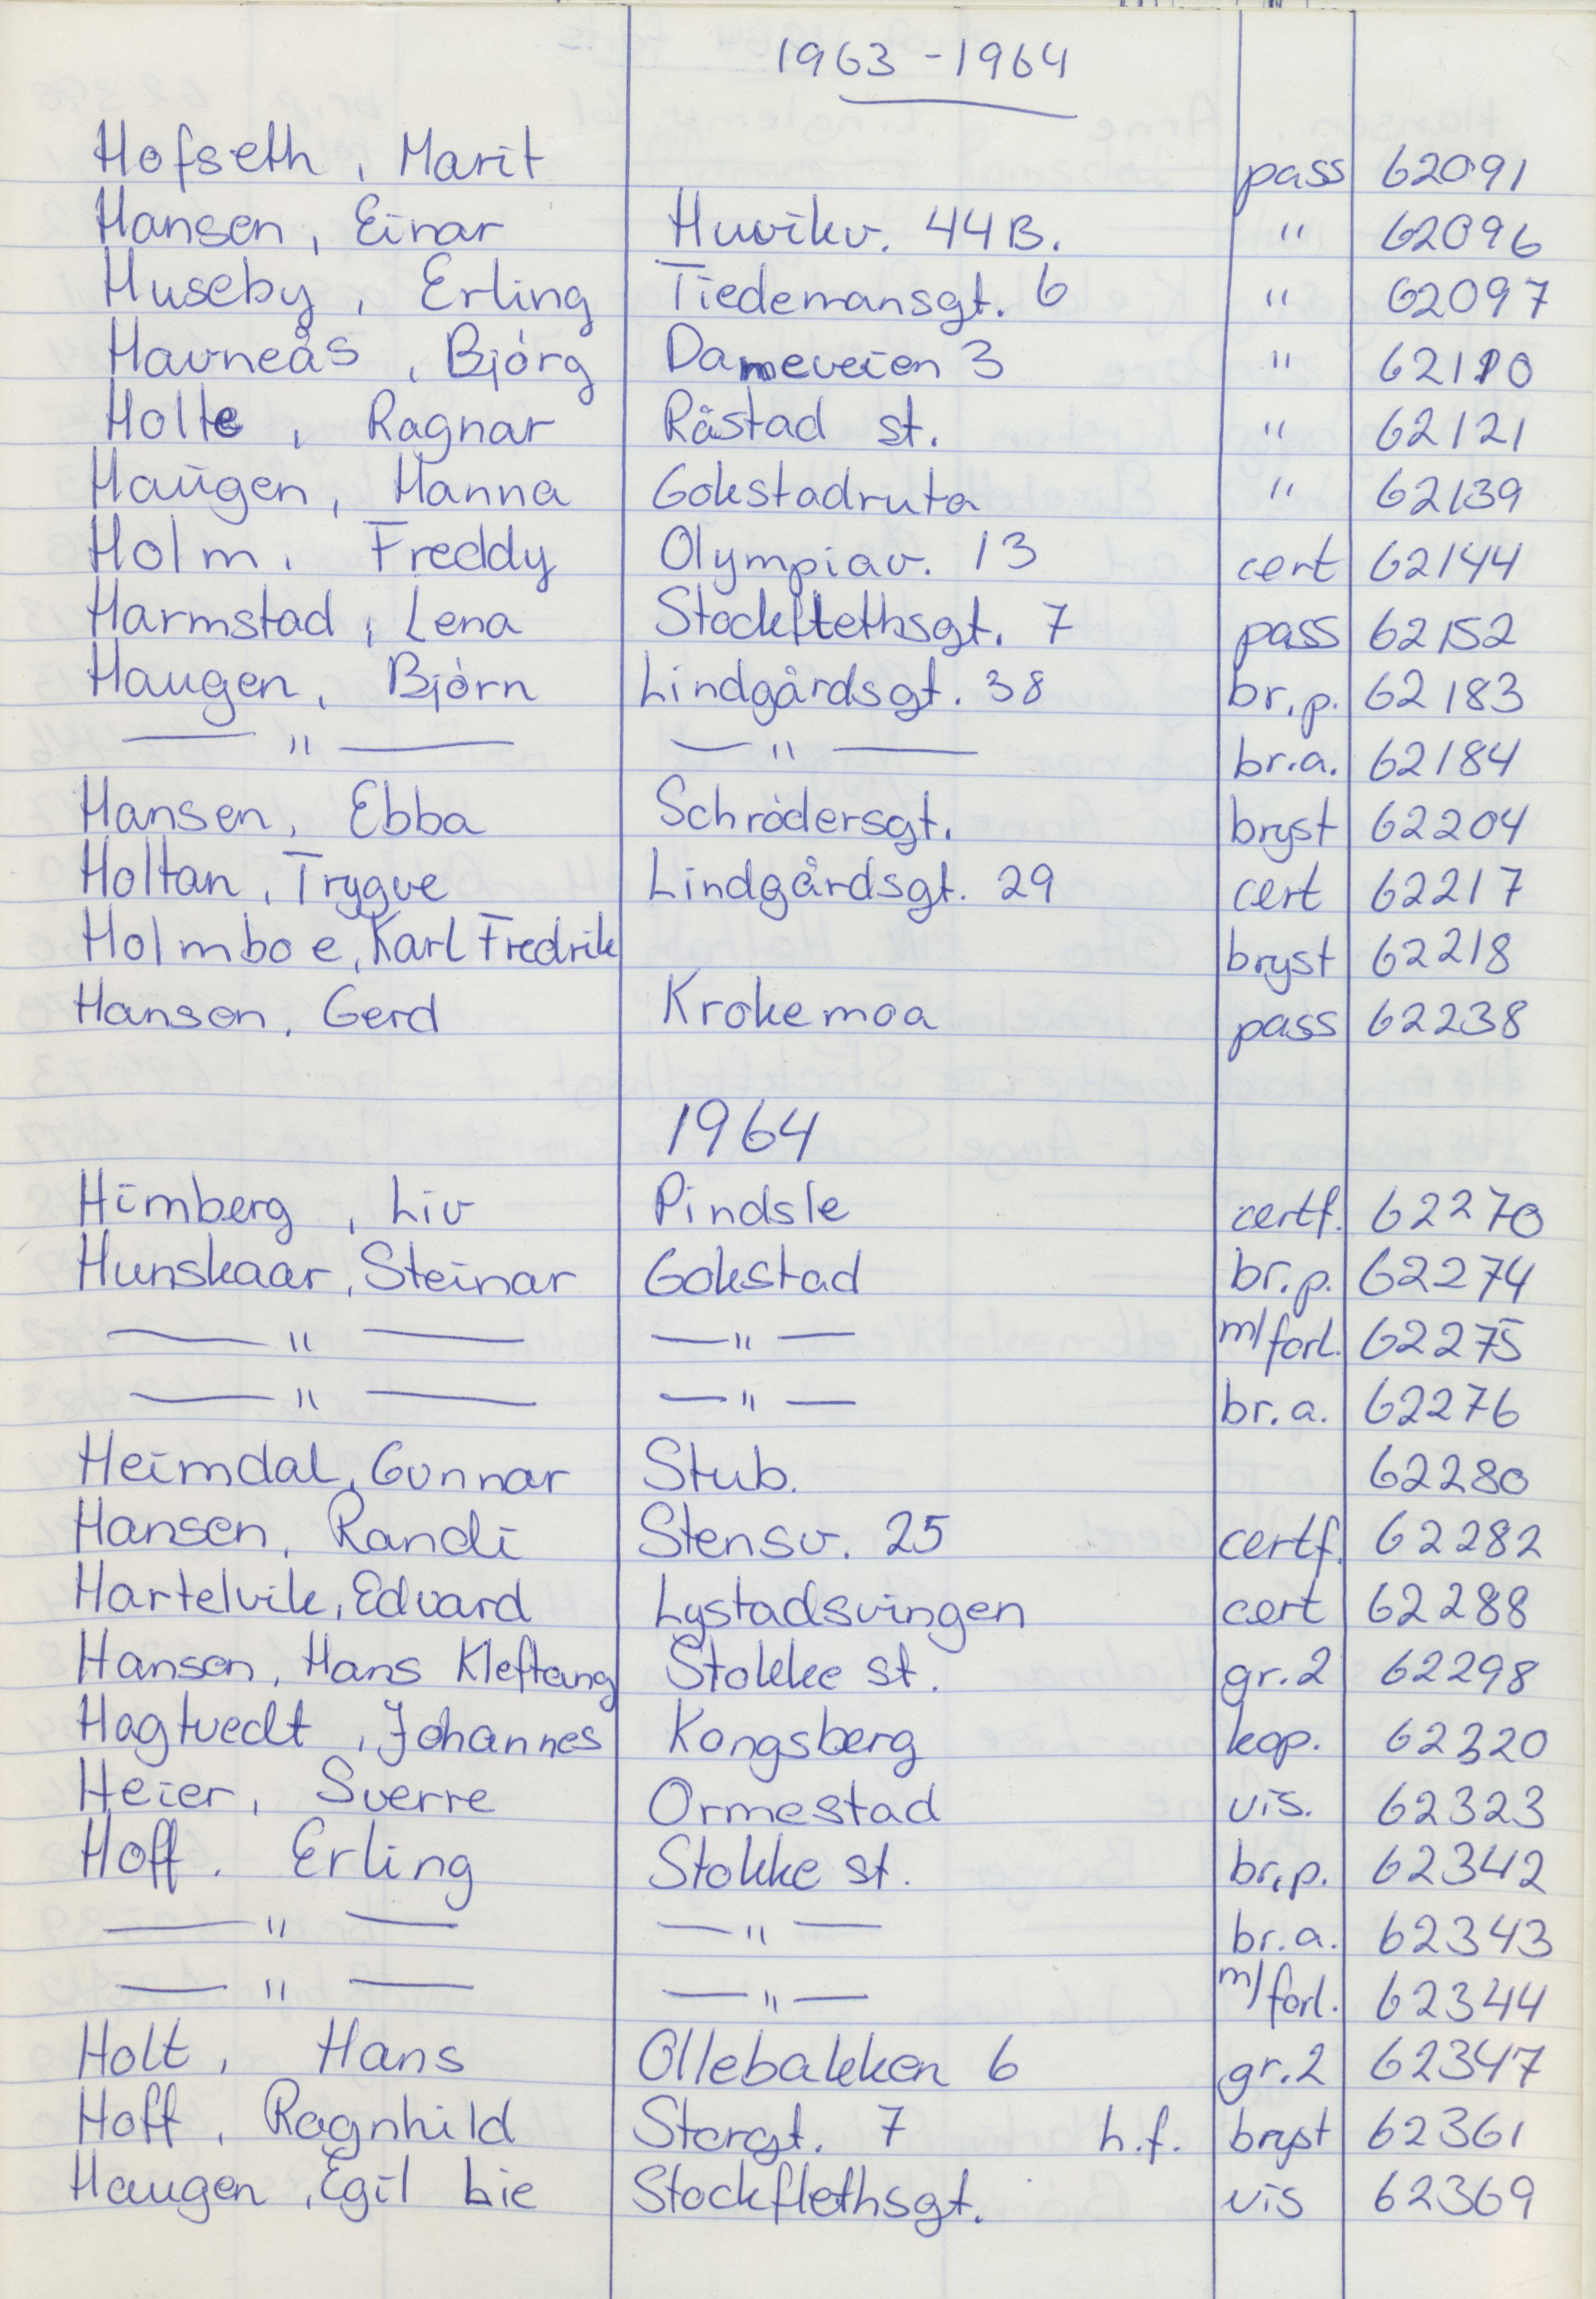 1963 - 1964
Hofseth, Marit pass 62091
Hansen, Einar Huvikv. 44B. " 62096
Huseby, Erling Tiedemansgt. 6 " 62097
Havneås, Bjørg Dameveien 3 " 62110
Holte, Ragnar Råstad st. " 62121
Haugen, Hanna Gokstadruta " 62139
Holm, Freddy Olympiav. 13 cert 62144
Harmstad, Lena Stockflethsgt. 7 pass 62152
Haugen, Bjørn Lindgårdsgt. 38 br.p. 62183
— " — — " — br.a. 62184
Hansen, Ebba Schrödersgt. bryst 62204
Holtan, Trygve Lindgårdsgt. 29 cert 62217
Holmboe, Karl Fredrik bryst 62218
Hansen, Gerd Krokemoa pass 62238
1964
Himberg, Liv Pindsle certf. 62270
Hunskaar, Steinar Gokstad br.p. 62274
— " — — " — m/forl. 62275
— " — — " — br.a. 62276
Heimdal, Gunnar Stub. 62280
Hansen, Randi Stensv. 25 certf. 62282
Hartelvik, Edvard Lystadsvingen cert 62288
Hansen, Hans Kleftang Stokke st. gr.2 62298
Hagtvedt, Johannes Kongsberg kop. 62320
Heier, Sverre Ormestad vis. 62323
Hoff, Erling Stokke st. br.p. 62342
— " — — " — br.a. 62343
— " — — " — m/forl. 62344
Holt, Hans Ollebakken 6 gr.2 62347
Hoff, Ragnhild Storgt. 7 h.f. bryst 62361
Haugen, Egil Lie Stockflethsgt. vis 62369